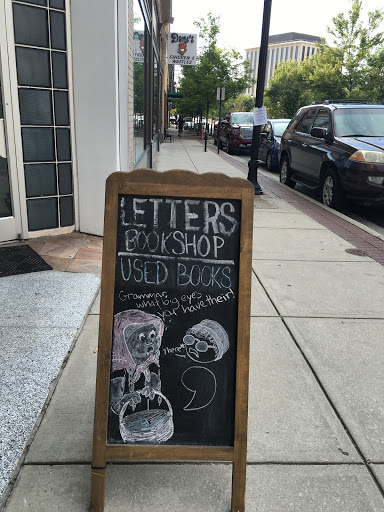 Dame's
CHICKEN &
WAFFLES
LETTERS
BOOKSHOP
USED BOOKS
Grammar,
what big eyes
your have their!
There*